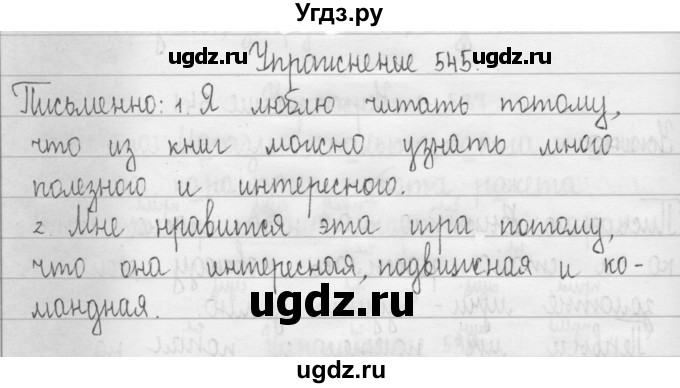 Угдз.ру
ugdz.ru ugdz.ru
Упражнение 545.
Письменно: 1. Я люблю читать потому,
что из книг можно узнать много
полезного и интересного.
ugdz.ru
2. Мне нравится эта игра потому,
что она интересная, подвижная и ко-
мандная.
ugdz.ru
ugdz.ru ugdz.ru